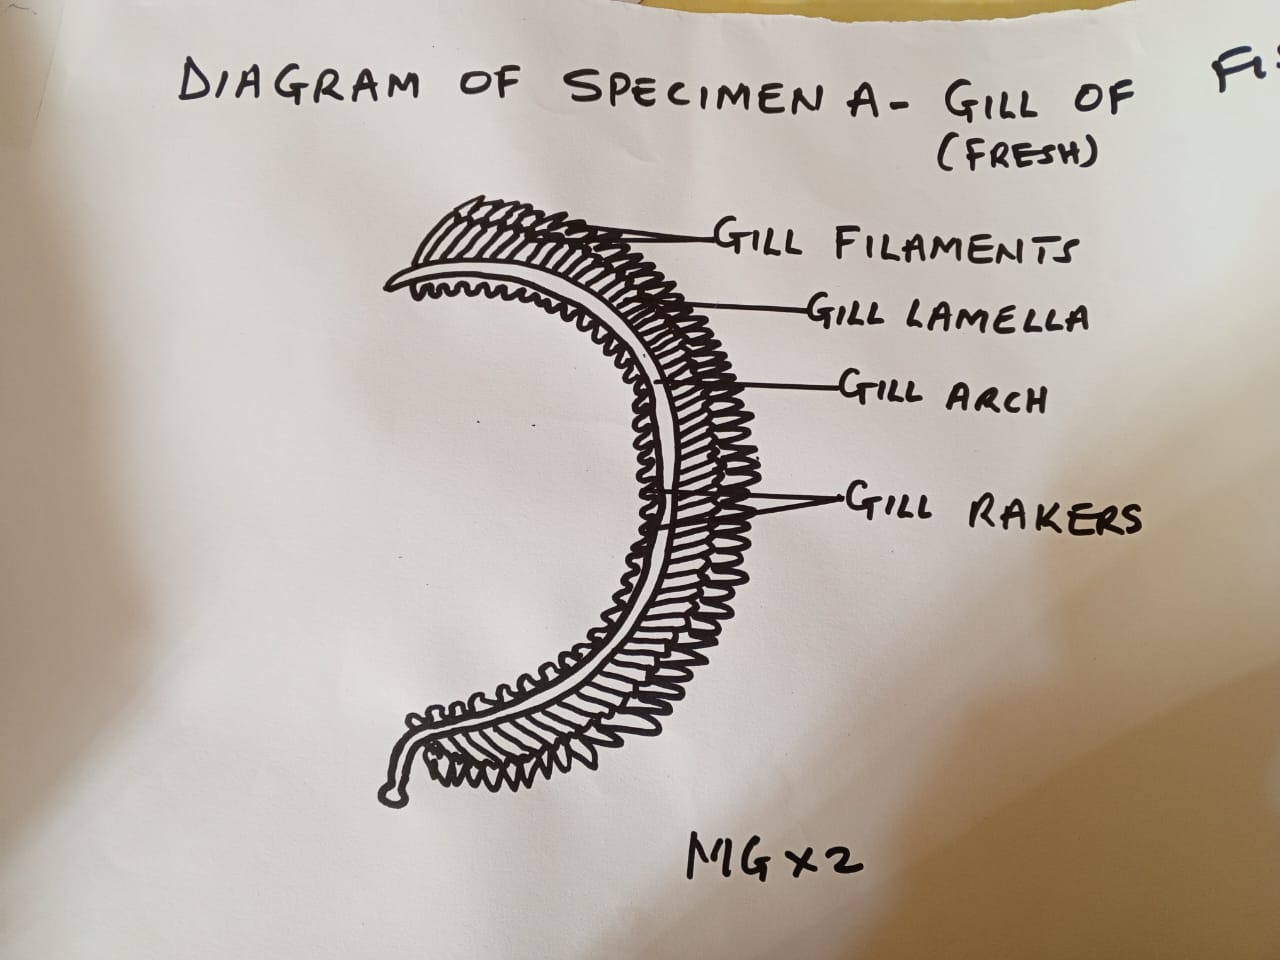 DIAGRAM OF SPECIMEN A- GILL OF
(FRESH)
GILL FILAMENTS
GILL LAMELLA
GILL ARCH
GILL RAKERS
MG X2